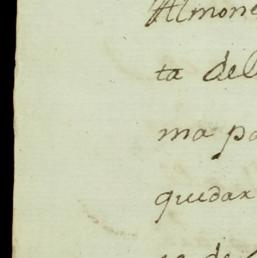 Almone
ta del
ma pa
quedar